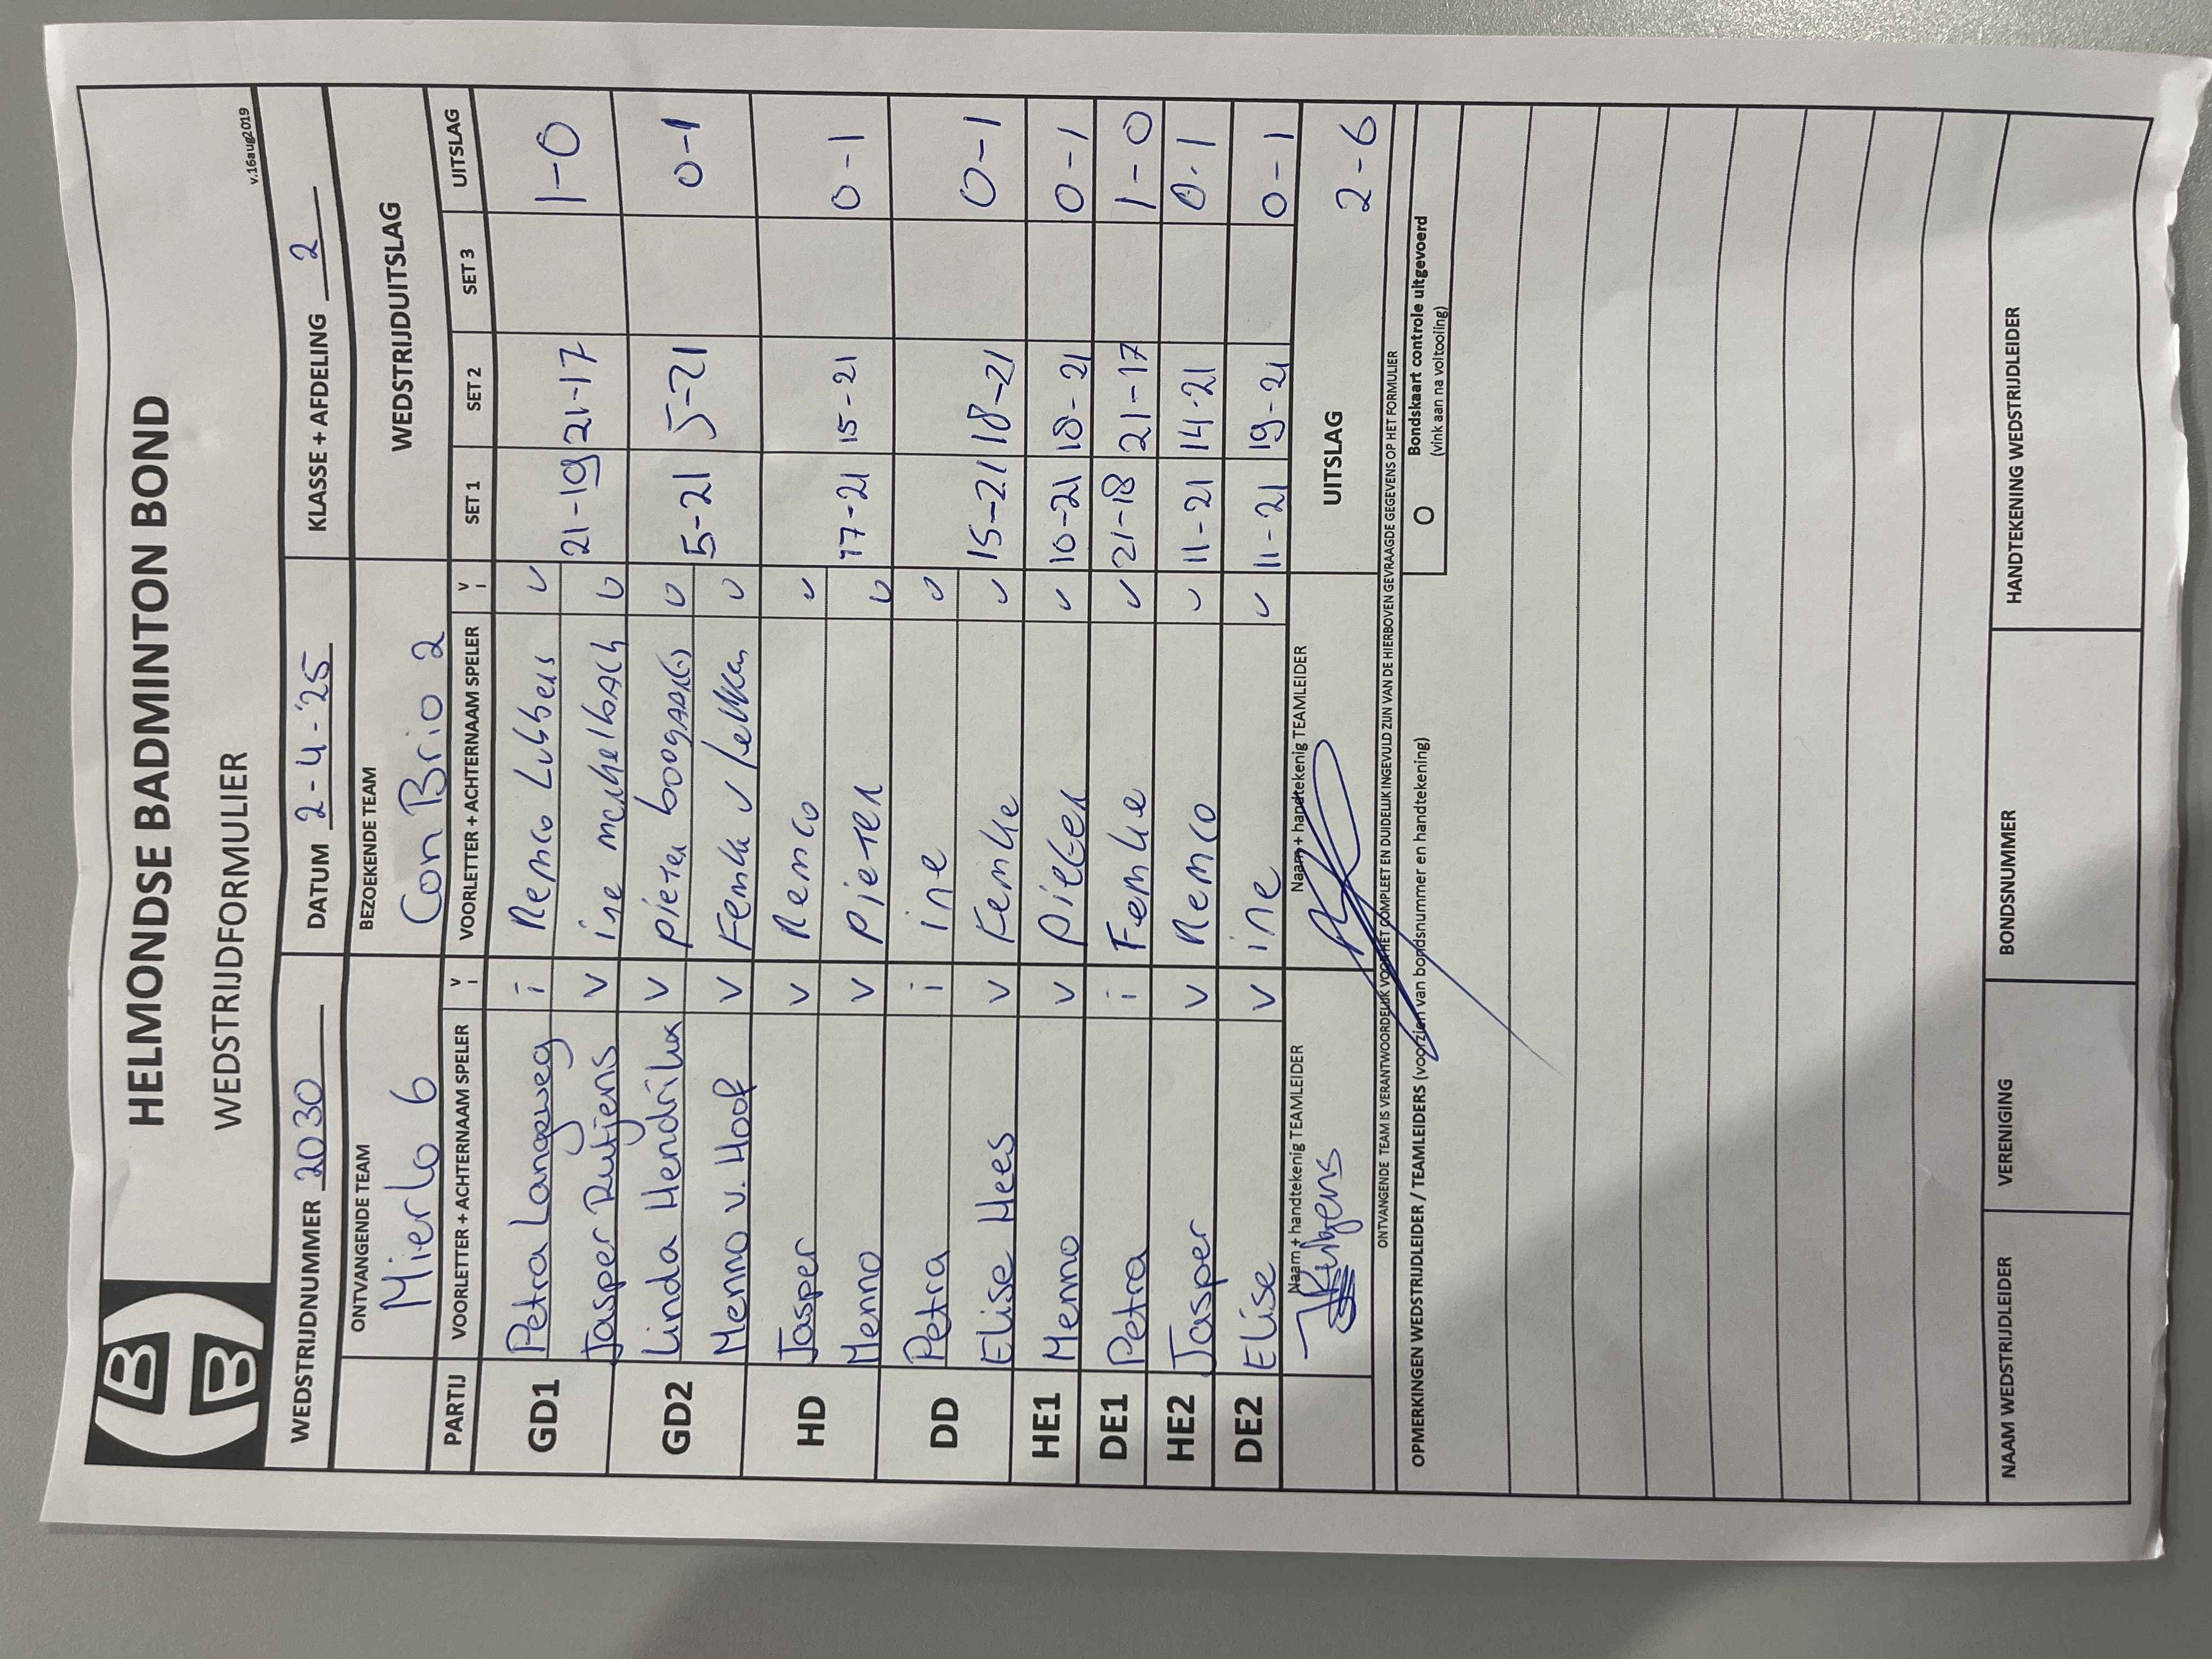 HELMONDSE BADMINTON BOND
WEDSTRIJDFORMULIER
v.16aug2019
WEDSTRIJDNUMMER 2030 DATUM 2-4-'25 KLASSE + AFDELING 2
ONTVANGENDE TEAM BEZOEKENDE TEAM WEDSTRIJDUITSLAG
Mierlo 6 Con Brio 2
PARTIJ VOORLETTER + ACHTERNAAM SPELER V I VOORLETTER + ACHTERNAAM SPELER V I SET 1 SET 2 SET 3 UITSLAG
GD1 Petra Langeweg i Remco Lubbers v 21-19 21-17 1-0
Jasper Rutjens v ine mechelbach v
GD2 Linda Hendrikx v pieter boogaard(s) v 5-21 5-21 0-1
Menno v. Hoof v Femke v v
HD Jasper v Remco v 17-21 15-21 0-1
Menno v Pieter v
DD Petra i ine v 15-21 18-21 0-1
Elise Hees v Femke v
HE1 Menno v Pieter v 10-21 18-21 0-1
DE1 Petra i Femke v 21-18 21-17 1-0
HE2 Jasper v Remco v 11-21 14-21 0-1
DE2 Elise v ine v 11-21 19-21 0-1
Naam + handtekenig TEAMLEIDER Naam + handtekenig TEAMLEIDER UITSLAG 2-6
ONTVANGENDE TEAM IS VERANTWOORDELIJK VOOR HET COMPLEET EN DUIDELIJK INGEVULD ZIJN VAN DE HIERBOVEN GEVRAAGDE GEGEVENS OP HET FORMULIER
OPMERKINGEN WEDSTRIJDLEIDER / TEAMLEIDERS (voorzien van bondsnummer en handtekening)
O Bondskaart controle uitgevoerd
(vink aan na voltooiing)
NAAM WEDSTRIJDLEIDER VERENIGING BONDSNUMMER HANDTEKENING WEDSTRIJDLEIDER